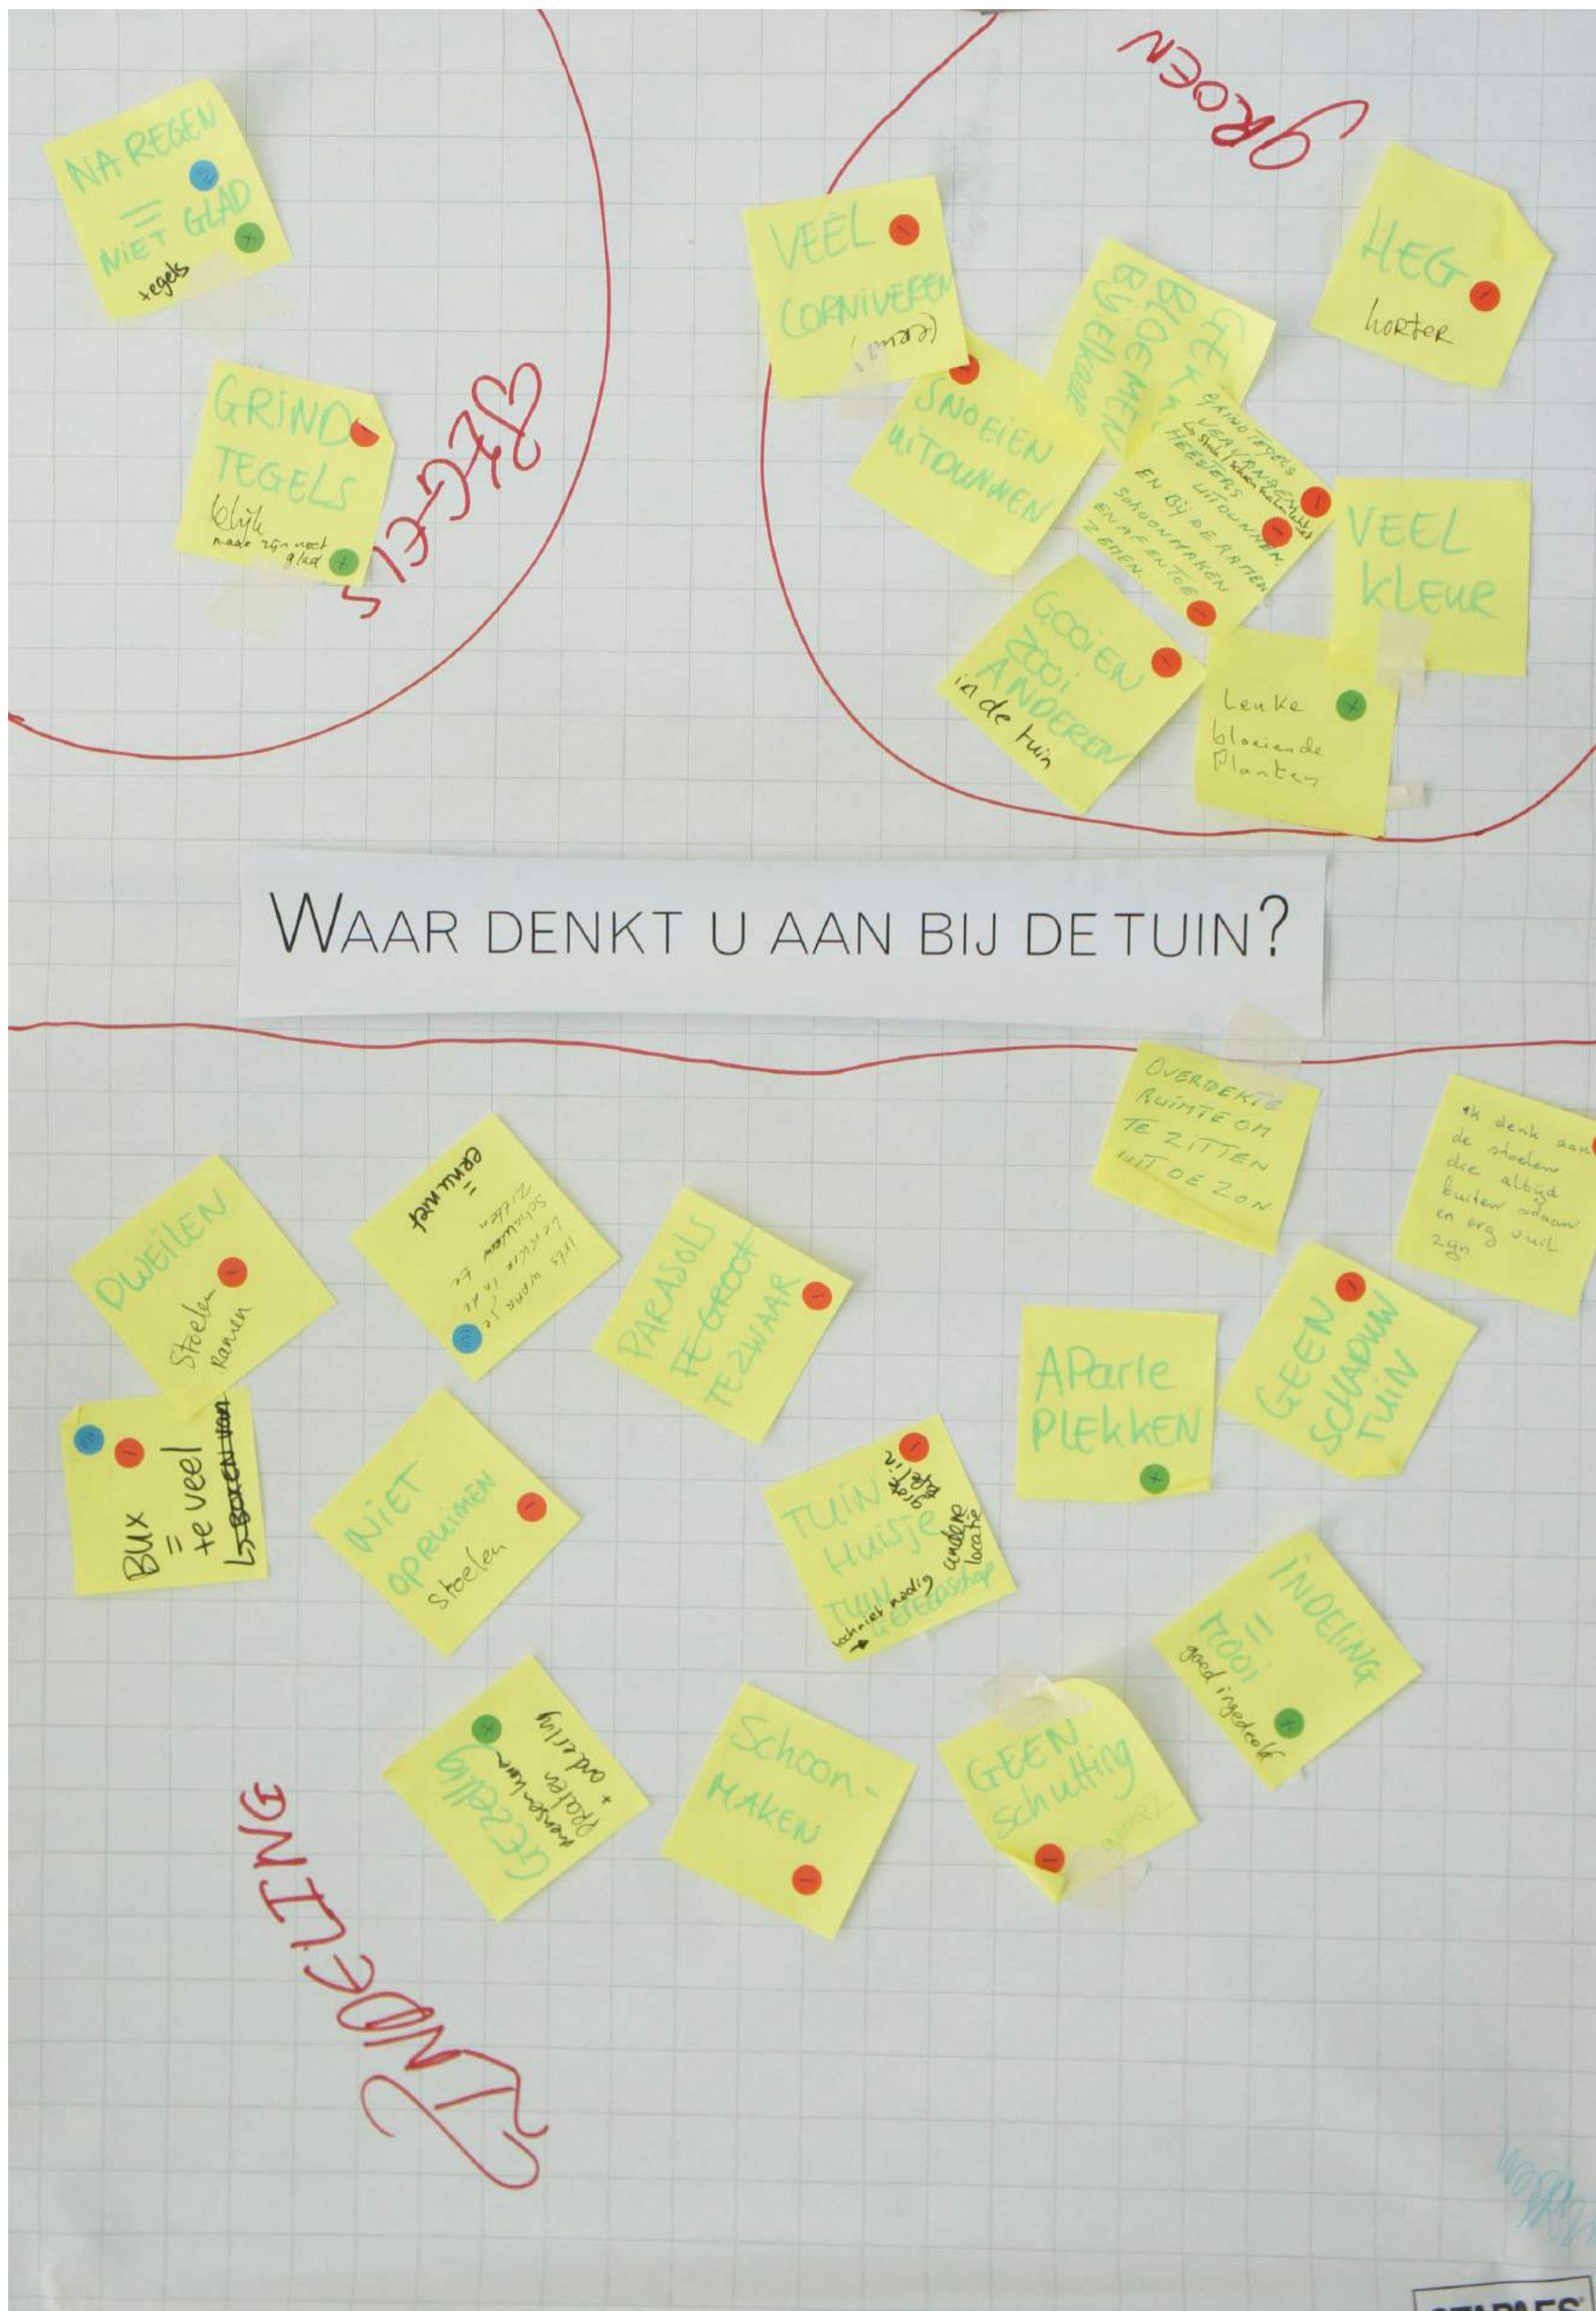 NA REGEN
=
NIET GLAD
tegels
GRIND
TEGELS
glad
GROEN
VEEL
CORNIVEREN
SNOEIEN
UITDUNNEN
BLOEMEN
Bij Elkaar
HEG
korter
GRINDTEGELS
VERVANGEN
HEESTERS
UITDUNNEN.
EN Bij DE RAMEN
SCHOONMAKEN
EN AF EN TOE
ZEMEN.
VEEL
KLEUR
GOOIEN
ZOOI
ANDEREN
in de tuin
Leuke
bloeiende
Planten
WAAR DENKT U AAN BIJ DE TUIN?
OVERDEKTE
RUIMTE OM
TE ZITTEN
UIT DE ZON
ik denk aan
de stoelen
die altijd
buiten staan
en erg vuil
zijn
DWEILEN
Stoelen
Ramen
iets waar je
lekker in de
schaduw te
zitten
=
er nu niet
PARASOLS
TE GROOT
TE ZWAAR
APARTE
PLEKKEN
GEEN
SCHADUW
TUIN
BUX
=
te veel
NIET
OPRUIMEN
stoelen
TUIN
Huisje
TUIN
GEREEDSCHAP
grote
tafel in
andere
locatie
toch niet nodig
INDELING
=
MOOI
goed ingedeeld
GEZELLIG
praten
+
onderling
Schoon-
MAKEN
GEEN
schutting
INDELING
STAPLES